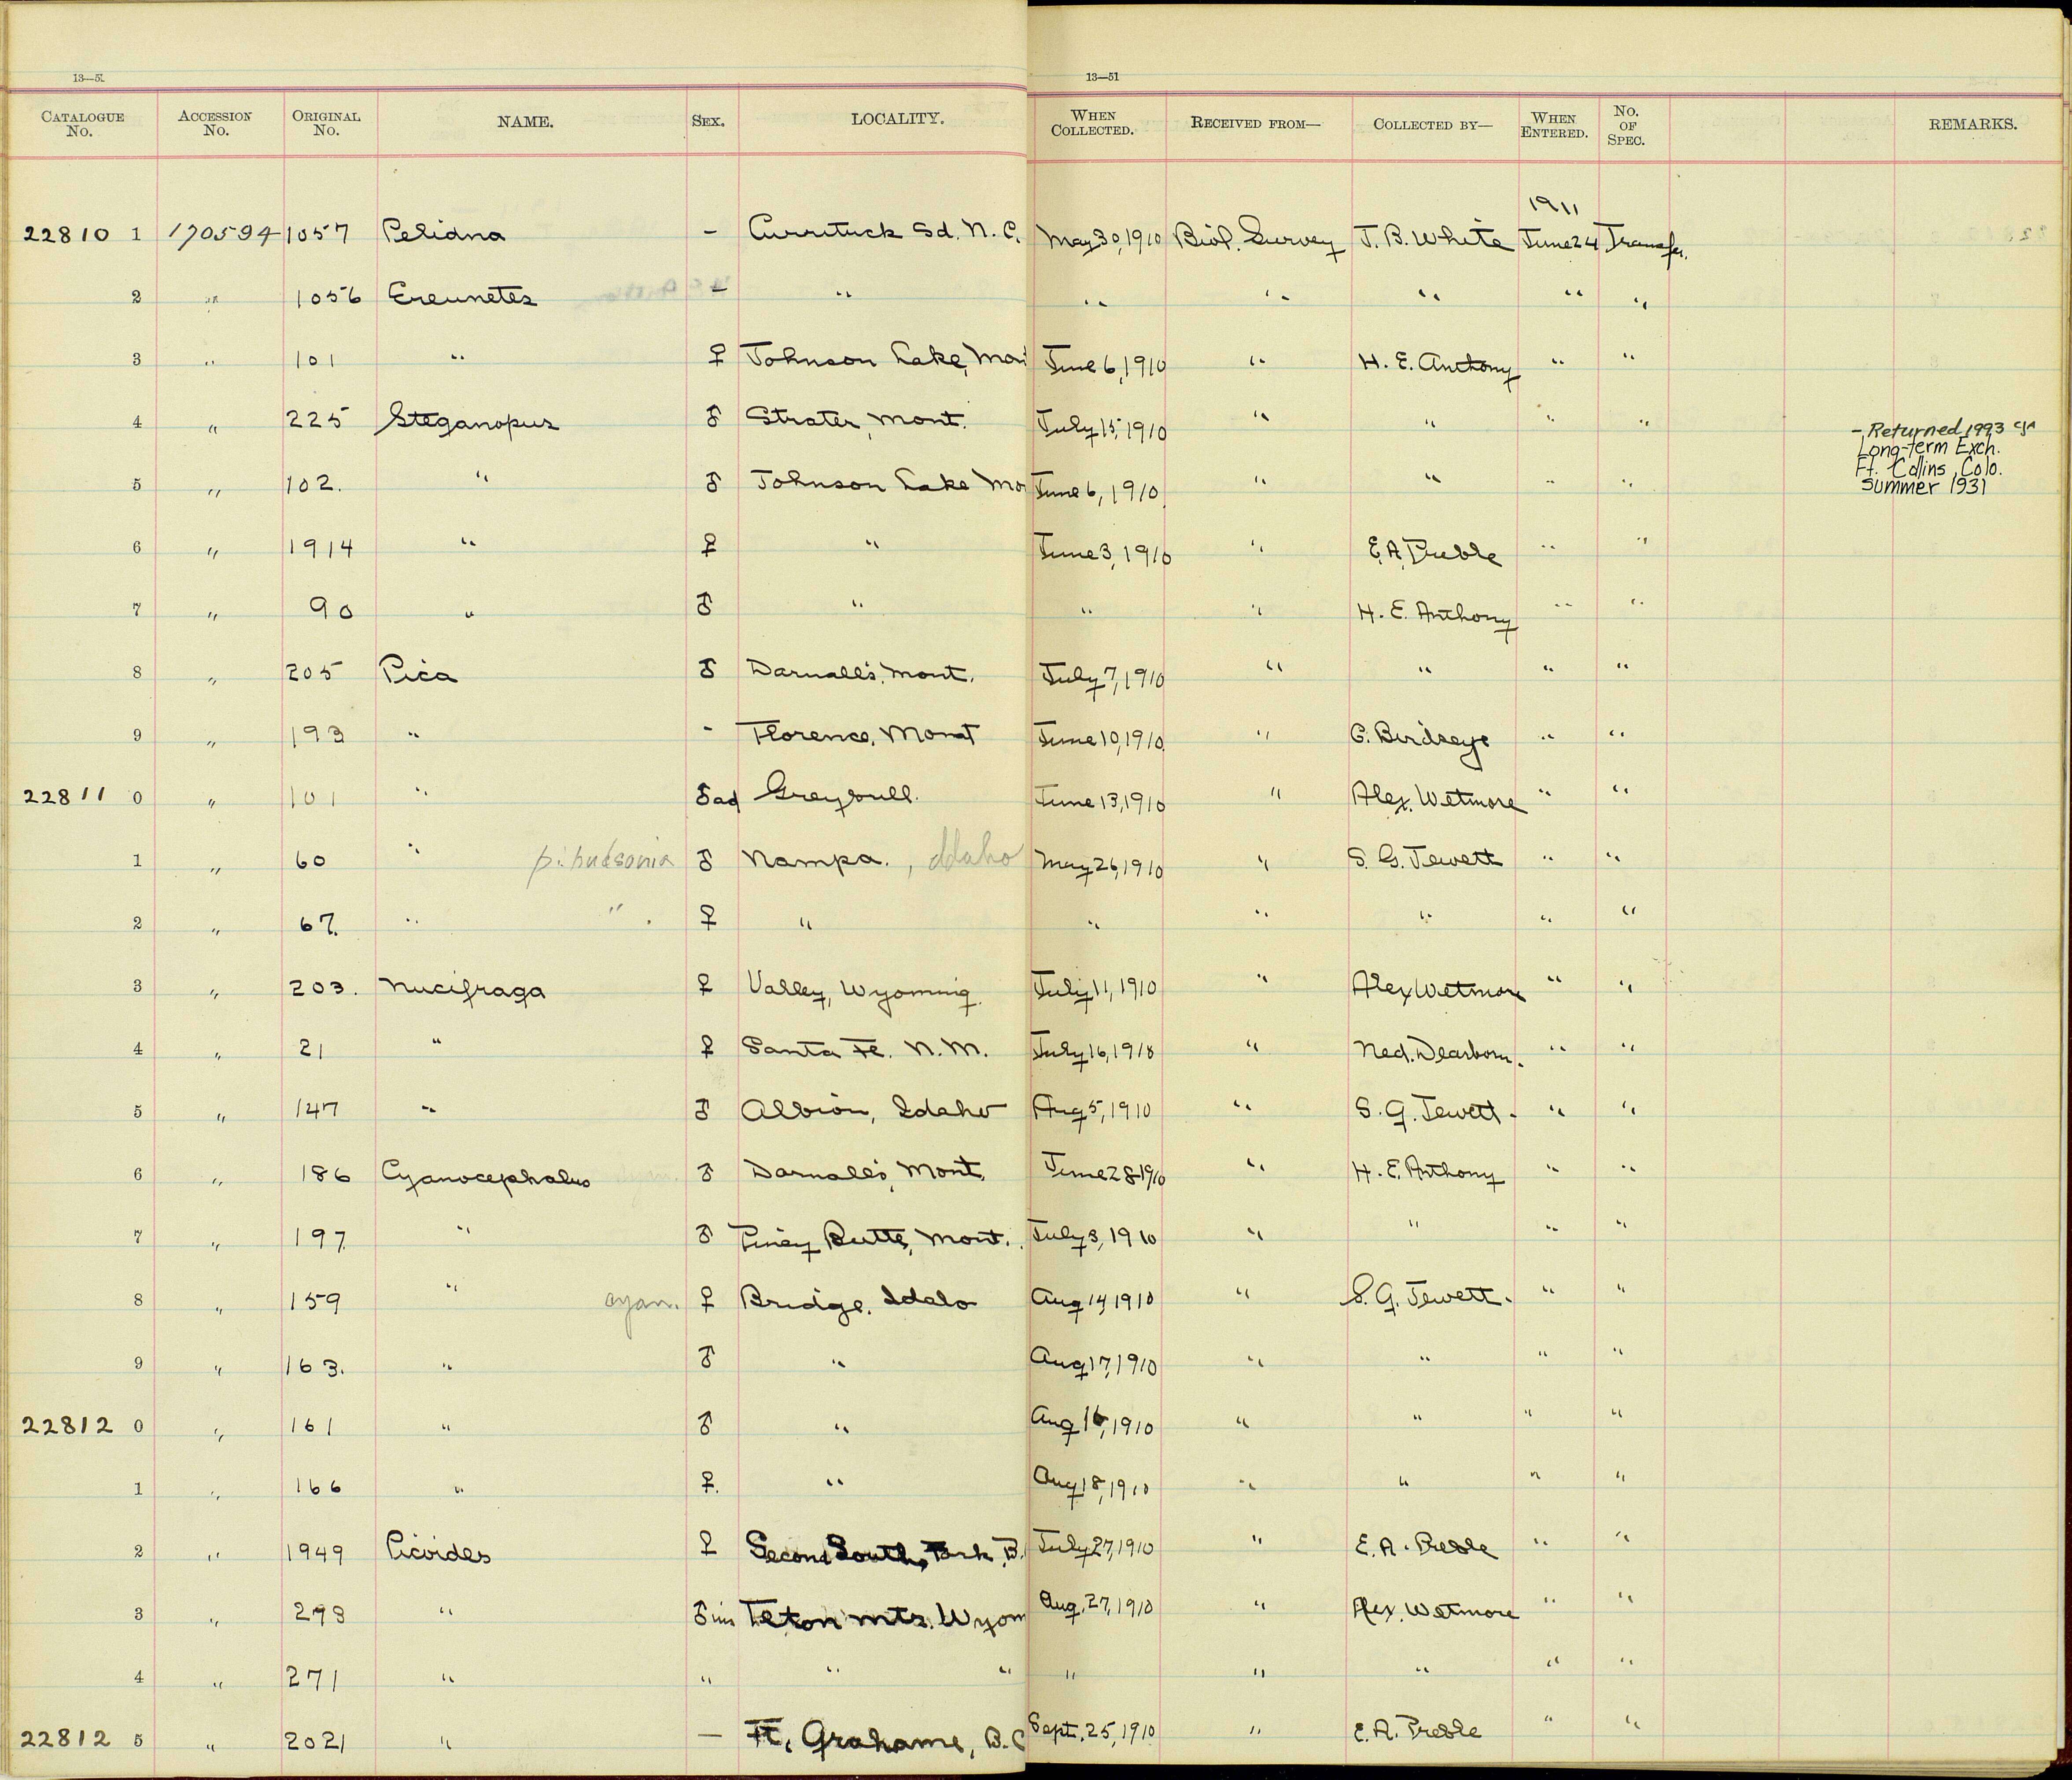 13—51
13—51
CATALOGUE No. ACCESSION No. ORIGINAL No. NAME. SEX. LOCALITY. WHEN COLLECTED. RECEIVED FROM— COLLECTED BY— WHEN ENTERED. No. OF SPEC. REMARKS.
1911
22810 1 170594 1057 Pelidna - Currituck Sd. N. C. May 30, 1910 Biol. Survey J. B. White June 24 Transfer.
2 " 1056 Ereunetes - " " " " " "
3 " 101 " ♀ Johnson Lake, Mon June 6, 1910 " H. E. Anthony " "
4 " 225 Steganopus ♂ Strater, Mont. July 15, 1910 " " " " - Returned 1993
Long-term Exch.
Ft. Collins, Colo.
Summer 1931
5 " 102. " ♂ Johnson Lake Mo June 6, 1910. " " " "
6 " 1914 " ♀ " June 3, 1910 " E. A. Preble " "
7 " 90 " ♂ " " " H. E. Anthony " "
8 " 205 Pica ♂ Darnall's, Mont. July 7, 1910 " " " "
9 " 193 " - Florence, Mont June 10, 1910. " C. Birdseye " "
22811 0 " 101 " ♂ad Greybull. June 13, 1910 " Alex. Wetmore " "
1 " 60 " p. hudsonia ♂ Nampa. , Idaho May 26, 1910 " S. G. Jewett " "
2 " 67. " " . ♀ " " " " " "
3 " 203. Nucifraga ♀ Valley, Wyoming. July 11, 1910 " Alex Wetmore " "
4 " 21 " ♀ Santa Fe. N. M. July 16, 1910 " Ned. Dearborn. " "
5 " 147 " ♂ Albion, Idaho Aug 5, 1910 " S. G. Jewett. " "
6 " 186 Cyanocephalus ♂ Darnall's, Mont. June 28 1910 " H. E. Anthony " "
7 " 197. " ♂ Piney Butte, Mont. July 3, 1910 " " " "
8 " 159 " cyan. ♀ Bridge, Idaho Aug 14, 1910 " S. G. Jewett. " "
9 " 163. " ♂ " Aug 17, 1910 " " " "
22812 0 " 161 " ♂ " Aug 16, 1910 " " " "
1 " 166 " ♀. " Aug 18, 1910 " " " "
2 " 1949 Picoides ♀ Second South, Fork, B. July 27, 1910 " E. A. Preble " "
3 " 298 " ♂ im Teton Mts. Wyom Aug. 27, 1910 " Alex. Wetmore " "
4 " 271 " " " " " " " " "
22812 5 " 2021 " — Ft. Grahame, B. C Sept. 25, 1910 " E. A. Preble " "